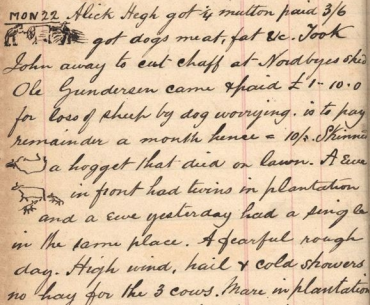 MON 22 Alick Hegh got ¼ mutton paid 3/6
got dogs meat, fat &c. Took
John away to cut chaff at Nordbyes
Ole Gundersen came & paid £1-10-0
for loss of sheep by dog worrying. is to pay
remainder a month hence = 10/- Skinned
a hogget that died on lawn. A Ewe
in front had twins in plantation
and a ewe yesterday had a single
in the same place. A fearful rough
day. High wind, hail & cold showers
no hay for the 3 cows. Mare in plantation